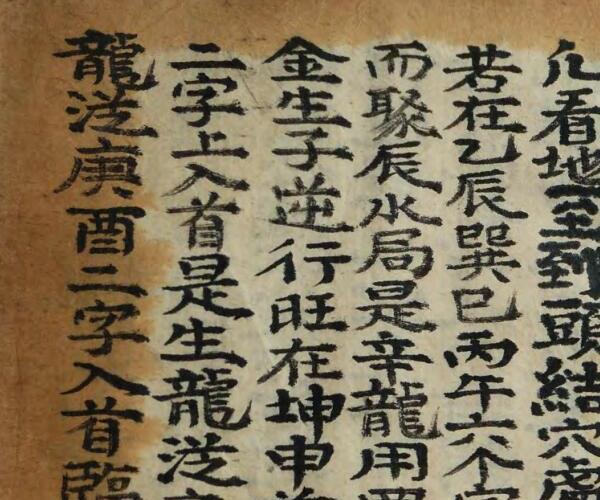 凢看地至到頭結穴處
若在乙辰巽巳丙午六个
而聚辰水局是辛龍用
金生子逆行旺在坤申
二字上入首是生龍従
龍従庚酉二字入首臨